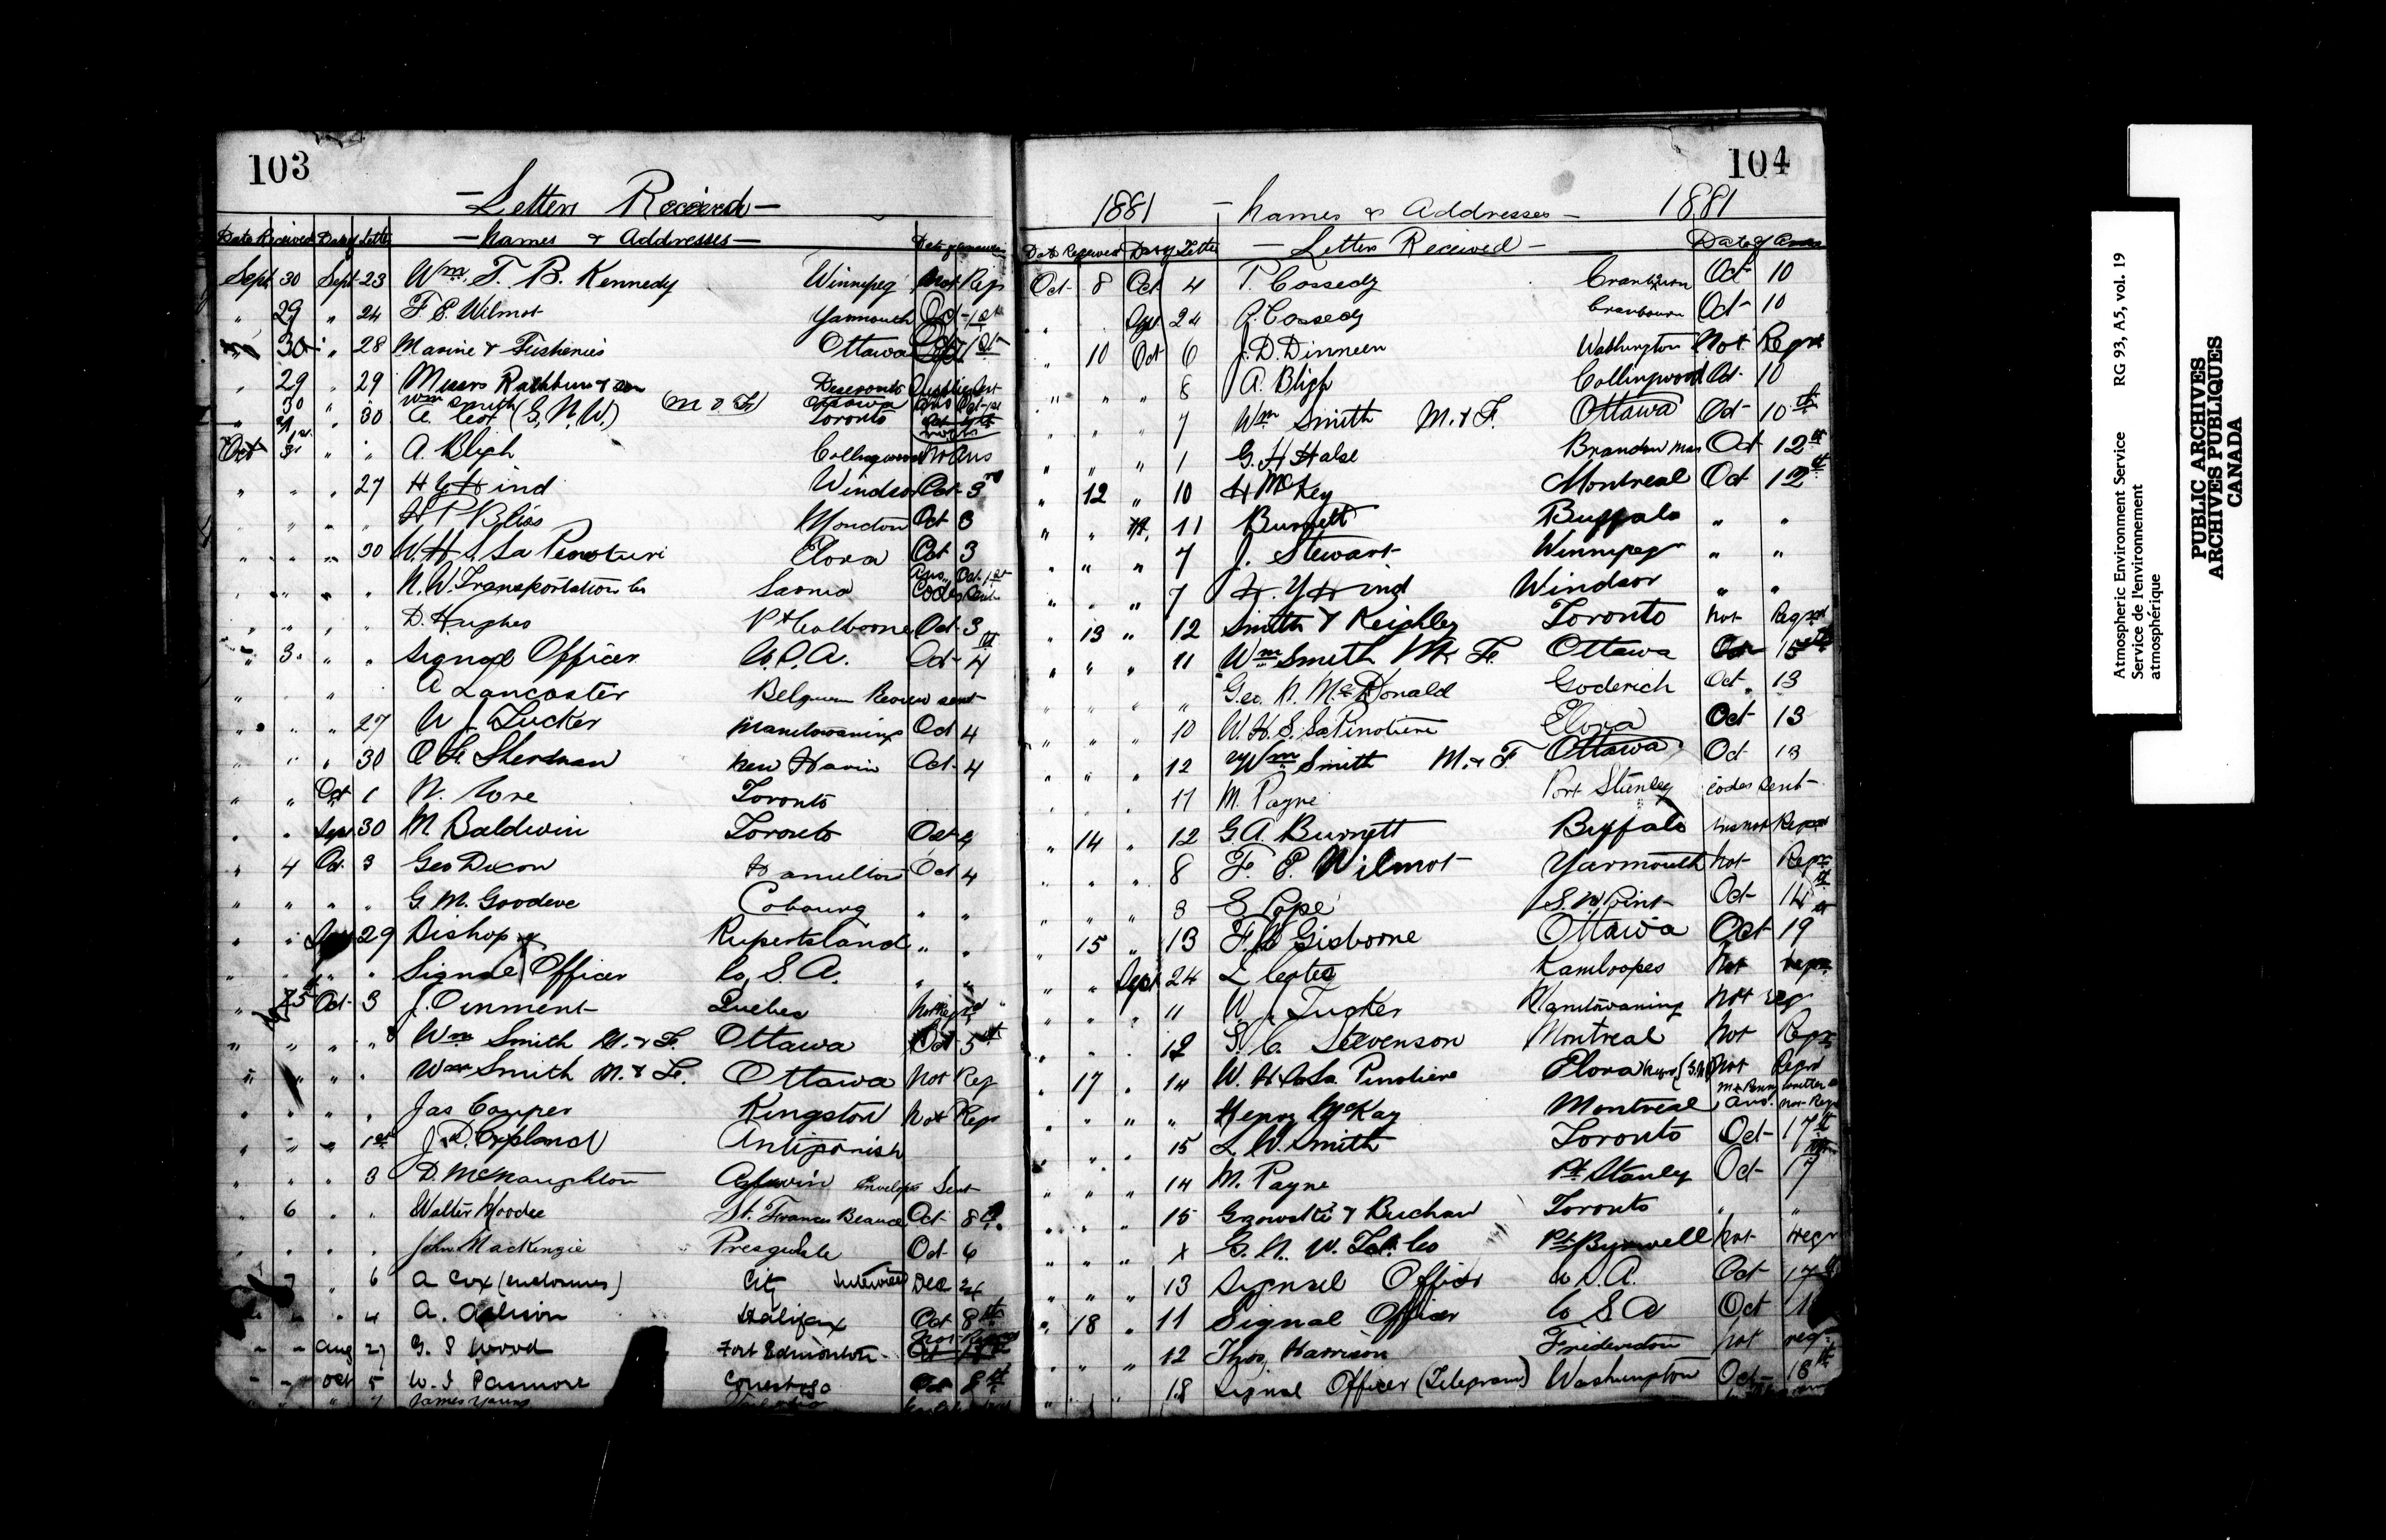 103
Letters Received
Date Received Date of Letter Names & Addresses Date of
Sept 30 Sept 23 Wm. T. B. Kennedy Winnipeg Not Req
" 29 " 24 F. E. Wilmot Yarmouth Oct 1st
" 30 " 28 Marine & Fisheries Ottawa 1st
" 29 " 29 Messrs Rathbun & Son Deseronto
" 30 " Wm Smith (M & F) Ottawa Ans Oct 1st
" 30 A. Cox (G. N. W.) Toronto
Oct 3 " " A. Bligh Collingwood No Ans
" " " 27 H Y Hind Windsor Oct 3rd
" " " " H P Bliss Moncton Oct 3
" " " 30 W. H. S. La Penotiere Elora Oct 3
" " " " N. W. Transportation Co Sarnia Ans. Oct. 1st Codes Sent
" " " " D. Hughes Pt Colborne Oct 3
" 3 " " Signal Officer U. S. A. Oct 4th
" " " A Lancaster Belgium Review sent
" " " 27 W J. Tucker Manitowaning Oct 4
" " " 30 O. F. Sherman New Haven Oct 4
" " Oct 1 N. Gore Toronto
" " Sept 30 M Baldwin Toronto Oct 4
" 4 Oct. 3 Geo Dixon Hamilton Oct 4
" " " " G. M. Goodeve Cobourg " "
" " Sept 29 Bishop of Rupertsland " "
" " " " Signal Officer U. S. A. " "
" 5 Oct 3 J. Oinment Quebec Not Req'd
" " " " Wm Smith M. & F. Ottawa Oct 5th
" " " " Wm Smith M. & F. Ottawa Not Req
" " " " Jas Cooper Kingston Not Req
" " " 1st J. D. Copland Antigonish
" " " 3 D. McNaughton Envelopes Sent
" 6 " " Walter Moodie St. Frances Beauce Oct 8th
" " " " John Mackenzie Presqu'isle Oct 6
" 7 " 6 A Cox (enclosures) City Interview Dec 24
" " " 4 A. Allison Halifax Oct 8th
" " Aug 27 G. S Wood Fort Edmonton Not Req
" " Oct 5 W. J Pasmore Conestogo Oct 8th
" " " 7 James Young
104
1881 Names & Addresses 1881
Date Received Date of Letter Letters Received Date of Ans
Oct 8 Oct 4 P. Cassedy Cranbourn Oct 10
" " 24 P. Cassedy Cranbourn Oct 10
" 10 Oct 6 J. D. Dinneen Washington Not Reqd
" " " 8 A. Bligh Collingwood Oct 10
" " " 7 Wm Smith M. & F. Ottawa Oct 10th
" " " 1 G. H Halse Brandon Man Oct 12th
" 12 " 10 H McKey Montreal Oct 12th
" " " 11 Burnett Buffalo " "
" " " 7 J. Stewart Winnipeg " "
" " " 7 H. Y Hind Windsor " "
" 13 " 12 Smith & Keighley Toronto Not Reqd
" " " 11 Wm Smith M. F. Ottawa Oct 15th
" " " " Geo. N. McDonald Goderich Oct. 13
" " " 10 W. H. S. La Penotiere Elora Oct 13
" " " 12 Wm Smith M. & F Ottawa Oct 13
" " " 11 M. Payne Port Stanley codes sent
" 14 " 12 G. A. Burnett Buffalo Ans not Reqd
" " " 8 F. E. Wilmot Yarmouth Not Reqd
" " " 3 E Pope S. W Point Oct 14th
" 15 " 13 F. N Gisborne Ottawa Oct 19th
" " Sept 24 Kamloopes Not reqd
" " " 11 W. J Tucker Manitowaning Not req
" " " 12 S. C. Stevenson Montreal Not Reqd
" 17 " 14 W. H. S. La Penotiere Elora Not Reqd
" " " " Henry McKay Montreal Ans. not Reqd
" " " 15 L. W. Smith Toronto Oct 17th
" " " 14 M. Payne Pt. Stanley Oct 17
" " " 15 Gzowski & Buchan Toronto " "
" " " x G. N. W. Tel. Co Pt Burwell Not reqd
" " " 13 Signal Officer U. S. A. Oct 17th
" 18 " 11 Signal Officer U S A Oct
" " " 12 Thos. Harrison Fredericton Not req
" " " 18 Signal Officer (Telegram) Washington Oct 18th
Atmospheric Environment Service RG 93, A5, vol. 19
Service de l'environnement
atmosphérique
PUBLIC ARCHIVES
ARCHIVES PUBLIQUES
CANADA